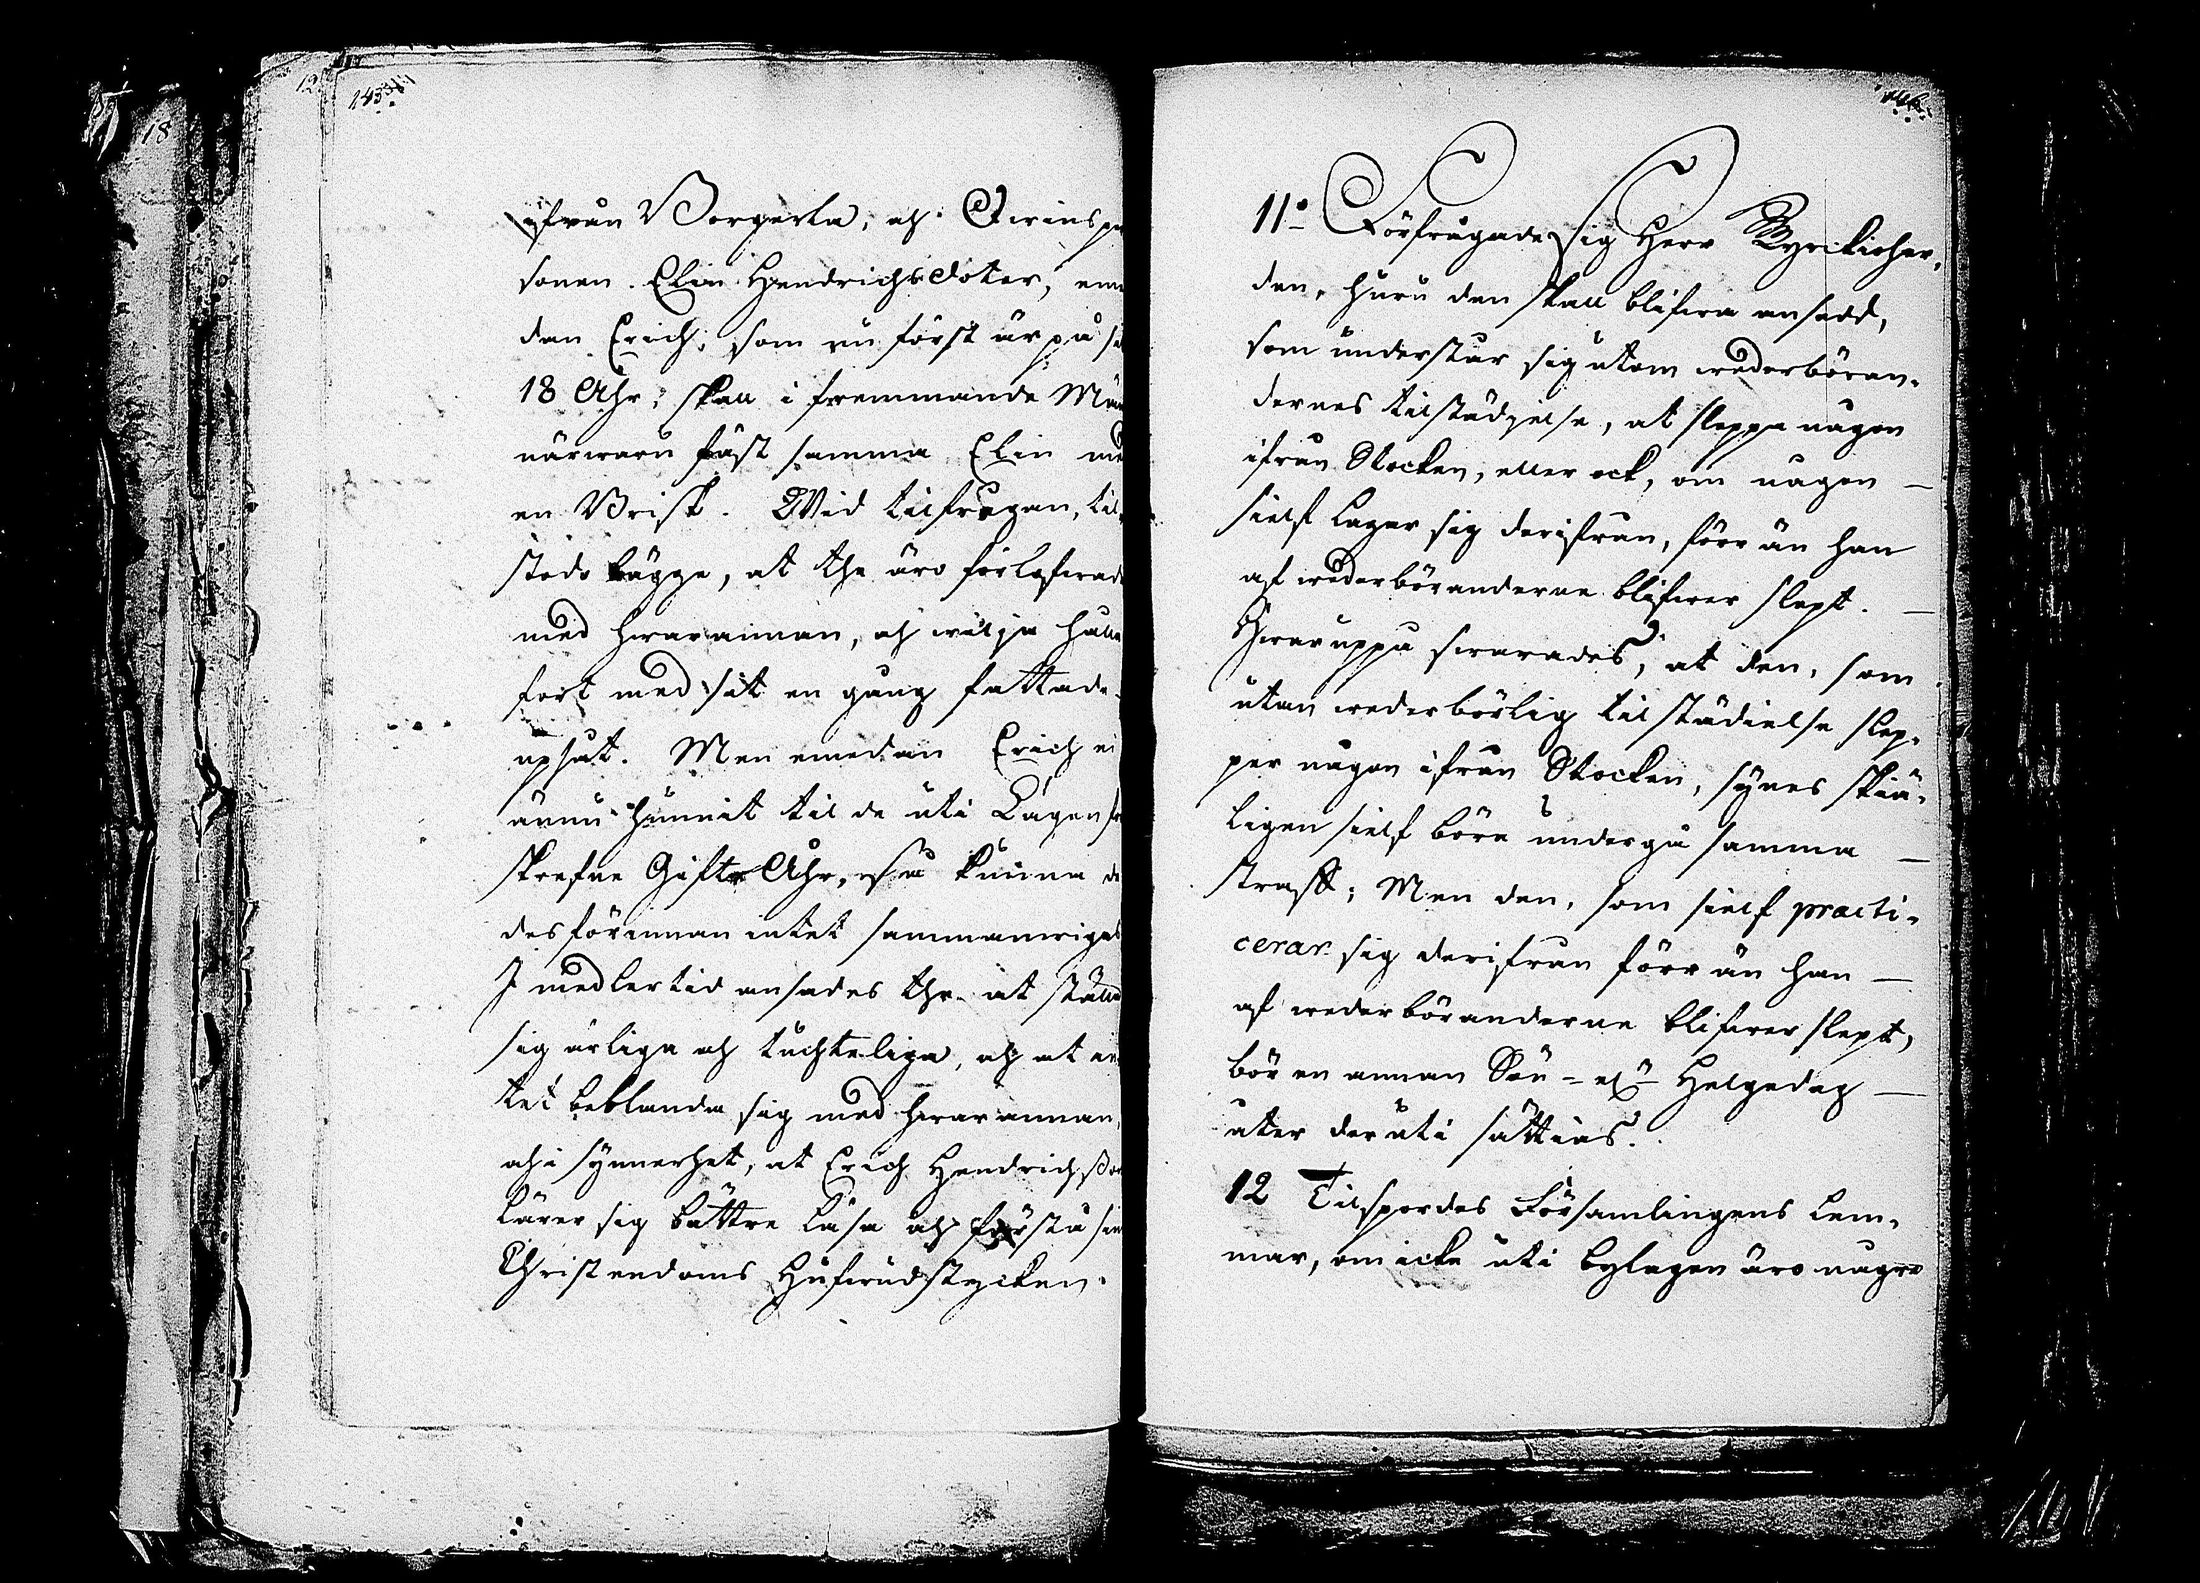 ifrån Borgerla, och Qwinspe
sonen Elin Hendrichsdoter; em
dan Erich, som nu först är på sit
18 Åhr; skall i fremmande Män
närwaru fäst samma Elin med
en Brisk. Wid tilfrågan, til-
stodo bägge, at the äro förlofwade
med hwarannan, och wilja hålla
fort med sit en gång fattade
upsåt. Men emedan Erich ei
ännu hunnit til de uti Lagen fö
skrefne Gifto Åhr, så kunna de
desförinnan intet sammanwigas
I medlertid ansades the at ställa
sig ärliga och tuchteliga, och at in
tet beblanda sig med hwarannan,
och i synnerhet, at Erich Hendrichsson
lärer sig bättre läsa och förstå sin
Christendoms Hufwudstycken.
11:o Förfrågade sig Herr Kyrckioher,
den, huru den skall blifwa ansedd,
som understår sig utom wederböran-
dernes tilstädjelse, at sleppa någon
ifrån Stocken, eller ock, om någon —
sielf lagar sig derifrån, förr än han
af wederböranderne blifwer slept. —
Hwaruppå swarades, at den, som
utan wederbörlig tilstädielse slep-
per någon ifrån Stocken, synes skiä-
ligen sielf böra undergå samma —
straff; Men den, som sielf practi-
cerar sig derifrån förr än han —
af wederböranderne blifwer slept,
bör en annan Sön- elr Helgedag —
åter deruti sättias.
12 Tilspordes Församlingens Lem-
mar, om icke uti bylagen äro någre